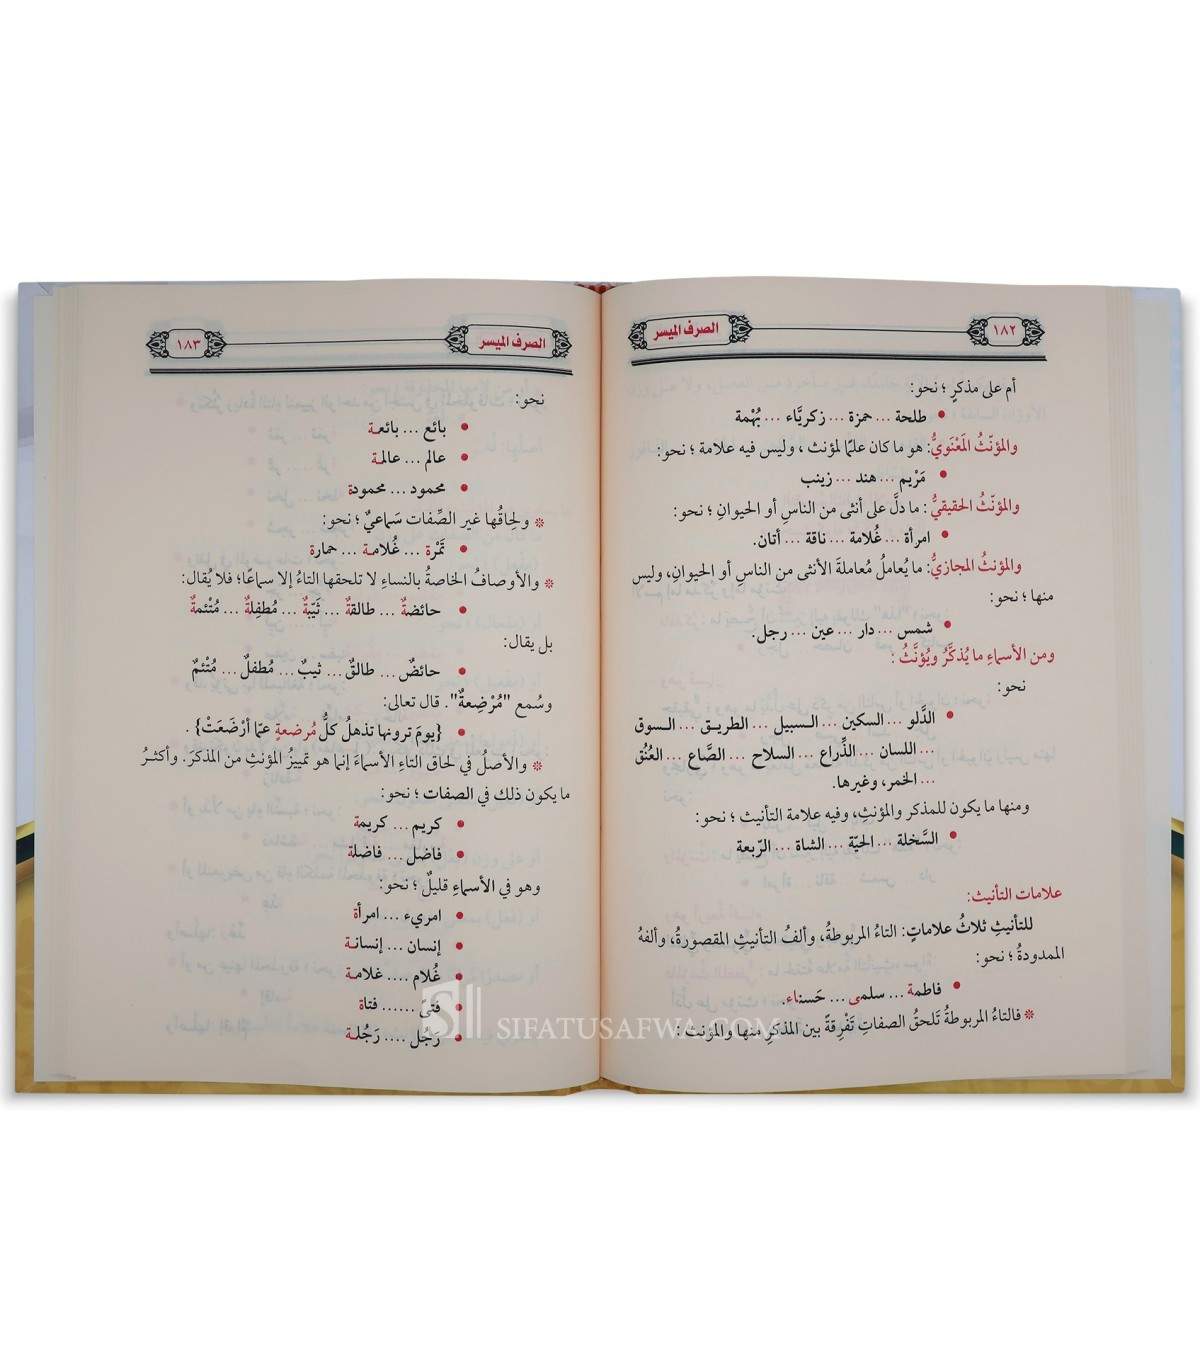 ١٨٢
الصرف الميسر
أم على مذكرٍ ؛ نحو:
• طلحة ... حمزة ... زكريَّاء ... بُهْمة
والمؤنّثُ المَعْنَويُّ: هو ما كان علمًا لمؤنث ، وليس فيه علامة ؛ نحو:
• مَرْيم ... هند ... زينب
والمؤنّثُ الحقيقيُّ : ما دلَّ على أنثى من الناسِ أو الحيوانِ ؛ نحو:
• امرأة ... غُلامة ... ناقة ... أتان.
والمؤنثُ المجازيُّ: ما يُعاملُ مُعاملةَ الأنثى من الناسِ أو الحيوانِ، وليس
منها ؛ نحو:
• شمس ... دار ... عين ... رجل.
ومن الأسماءِ ما يُذكَّرُ ويُؤنَّثُ :
نحو:
• الدَّلو ... السكين ... السبيل ... الطريق ... السوق
... اللسان ... الذِّراع ... السلاح ... الصَّاع ... العُنُق
... الخمر، وغيرها.
ومنها ما يكون للمذكر والمؤنثِ، وفيه علامة التأنيث ؛ نحو:
• السَّخلة ... الحيّة ... الشاة ... الرّبعة
علامات التأنيث:
للتأنيثِ ثلاثُ علاماتٍ: التاءُ المربوطةُ، وألفُ التأنيثِ المقصورةُ، وألفهُ
الممدودةُ ؛ نحو:
• فاطمة ... سلمى ... حَسناء.
* فالتاءُ المربوطةُ تَلحقُ الصفاتِ تَفْرِقةً بين المذكرِ منها والمؤنث :
الصرف الميسر
١٨٣
نحو:
• بائع ... بائعة
• عالم ... عالمة
• محمود ... محمودة
* ولحِاقُها غير الصِّفات سَماعيٌ ؛ نحو:
• تَمْرة ... غُلامة ... حمارة
* والأوصافُ الخاصةُ بالنساءِ لا تلحقها التاءُ إلا سماعًا؛ فلا يُقال:
• حائضةٌ ... طالقةٌ ... ثَيّبةٌ ... مُطفِلةٌ ... مُتْئمةٌ
بل يقال:
• حائضٌ... طالقٌ... ثيبٌ... مُطفلٌ... مُتْئمٌ
وسُمع "مُرْضِعةٌ". قال تعالى:
• {يومَ ترونها تذهلُ كلُّ مُرضعةٍ عمّا أرْضَعَتْ} .
* والأصلُ في لحاق التاءِ الأسماءَ إنما هو تمييزُ المؤنثِ من المذكرَ. وأكثرُ
ما يكون ذلك في الصفات ؛ نحو:
• كريم ... كريمة
• فاضل ... فاضلة
وهو في الأسماءِ قليلٌ ؛ نحو:
• امريء ... امرأة
• إنسان ... إنسانة
• غُلام .... غلامة
• فتىً ...... فتاة
• رَجُل .... رَجُلة
SIFATUSAFWA.COM